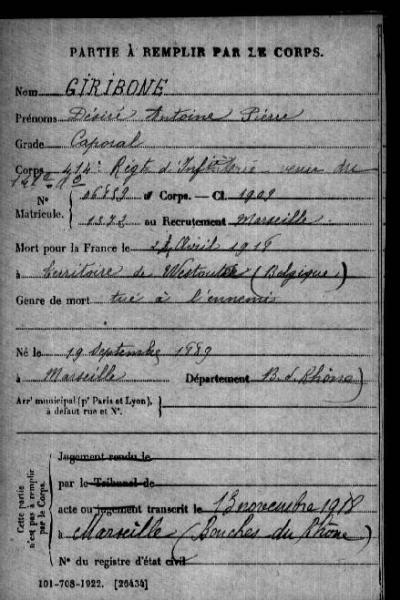 PARTIE À REMPLIR PAR LE CORPS.
Nom GIRIBONE
Prénoms Désiré Antoine Pierre
Grade Caporal
Corps 414e Régt d'Infanterie venu du
N° 06889 au Corps. — Cl. 1909
Matricule. 1372 au Recrutement Marseille
Mort pour la France le 24 Avril 1918
à Territoire de Westoutre (Belgique)
Genre de mort tué à l'ennemi
Né le 19 Septembre 1889
à Marseille Département B. d. Rhône
Arrt municipal (pr Paris et Lyon), à défaut rue et N°.
Cette partie n'est pas à remplir par le Corps.
Jugement rendu le
par le Tribunal de
acte ou jugement transcrit le 13 novembre 1918
à Marseille (Bouches du Rhône)
N° du registre d'état civil
101-708-1922. [26434]